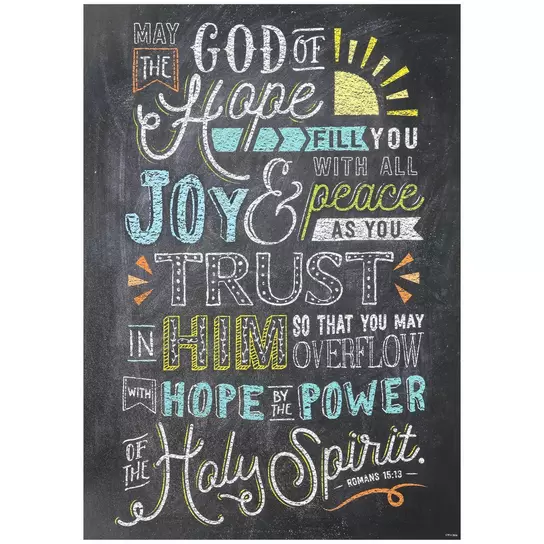 MAY THE GOD OF
Hope
FILL YOU
WITH ALL
JOY & peace
AS YOU
TRUST
IN HIM SO THAT YOU MAY
OVERFLOW
WITH HOPE BY THE POWER
OF THE Holy Spirit.
ROMANS 15:13